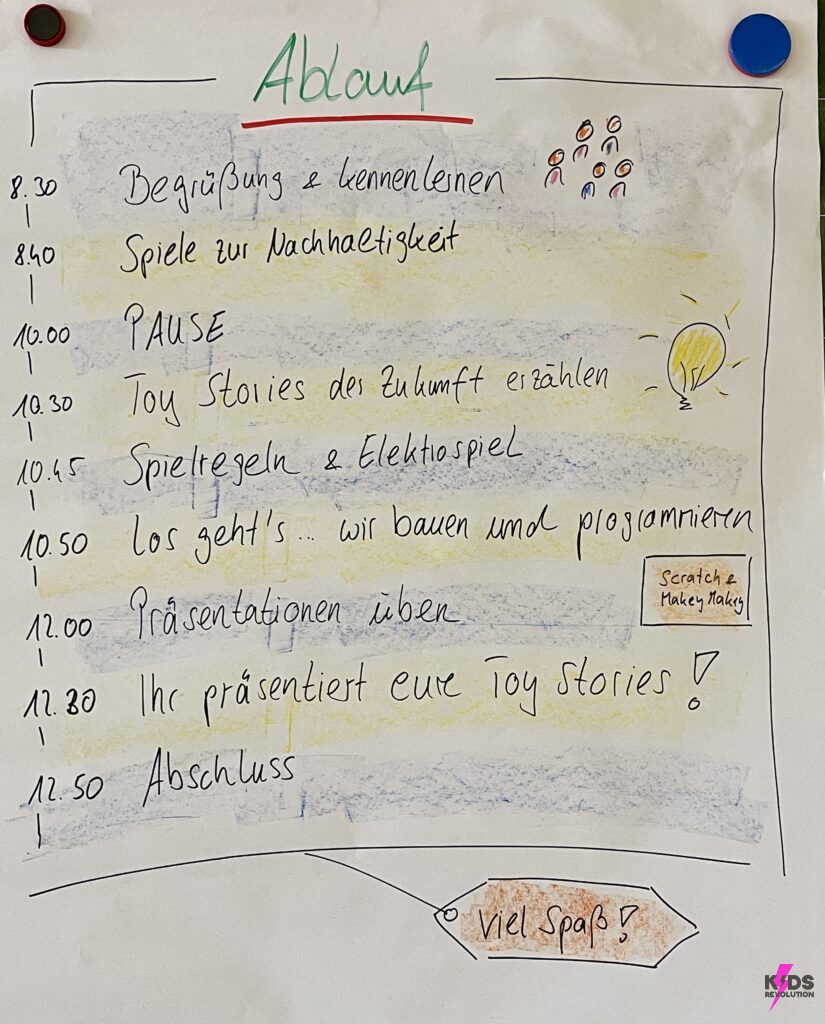 Ablauf
8.30 Begrüßung & kennenlernen
8.40 Spiele zur Nachhaltigkeit
10.00 PAUSE
10.30 Toy Stories der Zukunft erzählen
10.45 Spielregeln & Elektrospiel
10.50 Los geht's... wir bauen und programmieren
Scratch &
Makey Makey
12.00 Präsentationen üben
12.30 Ihr präsentiert eure Toy Stories!
12.50 Abschluss
Viel Spaß!
KIDS
REVOLUTION